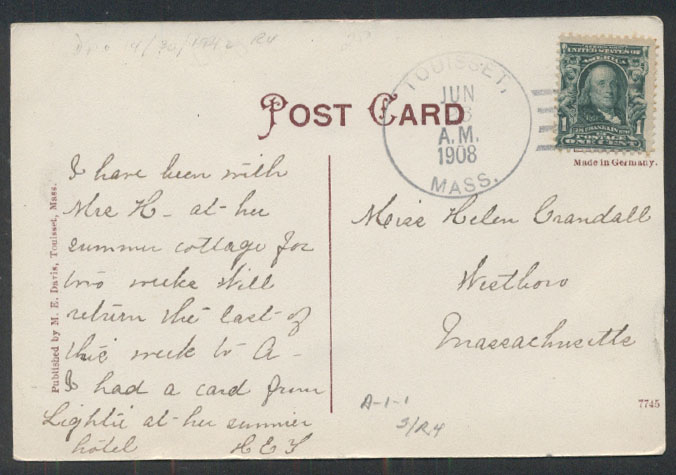 R4
TOUISSET,
JUN
A.M.
1908
MASS.
UNITED STATES OF
AMERICA
1 1
FRANKLIN
POSTAGE
ONE CENT
POST CARD
Made in Germany.
I have been with
Mrs H- at her
summer cottage for
two weeks Will
return the last of
this week to A-
I had a card from
at her summer
hotel H E S
Miss Helen Crandall
Westboro
Massachusetts
Published by M. E. Davis, Touisset, Mass.
A-1-1
S/R4
7745